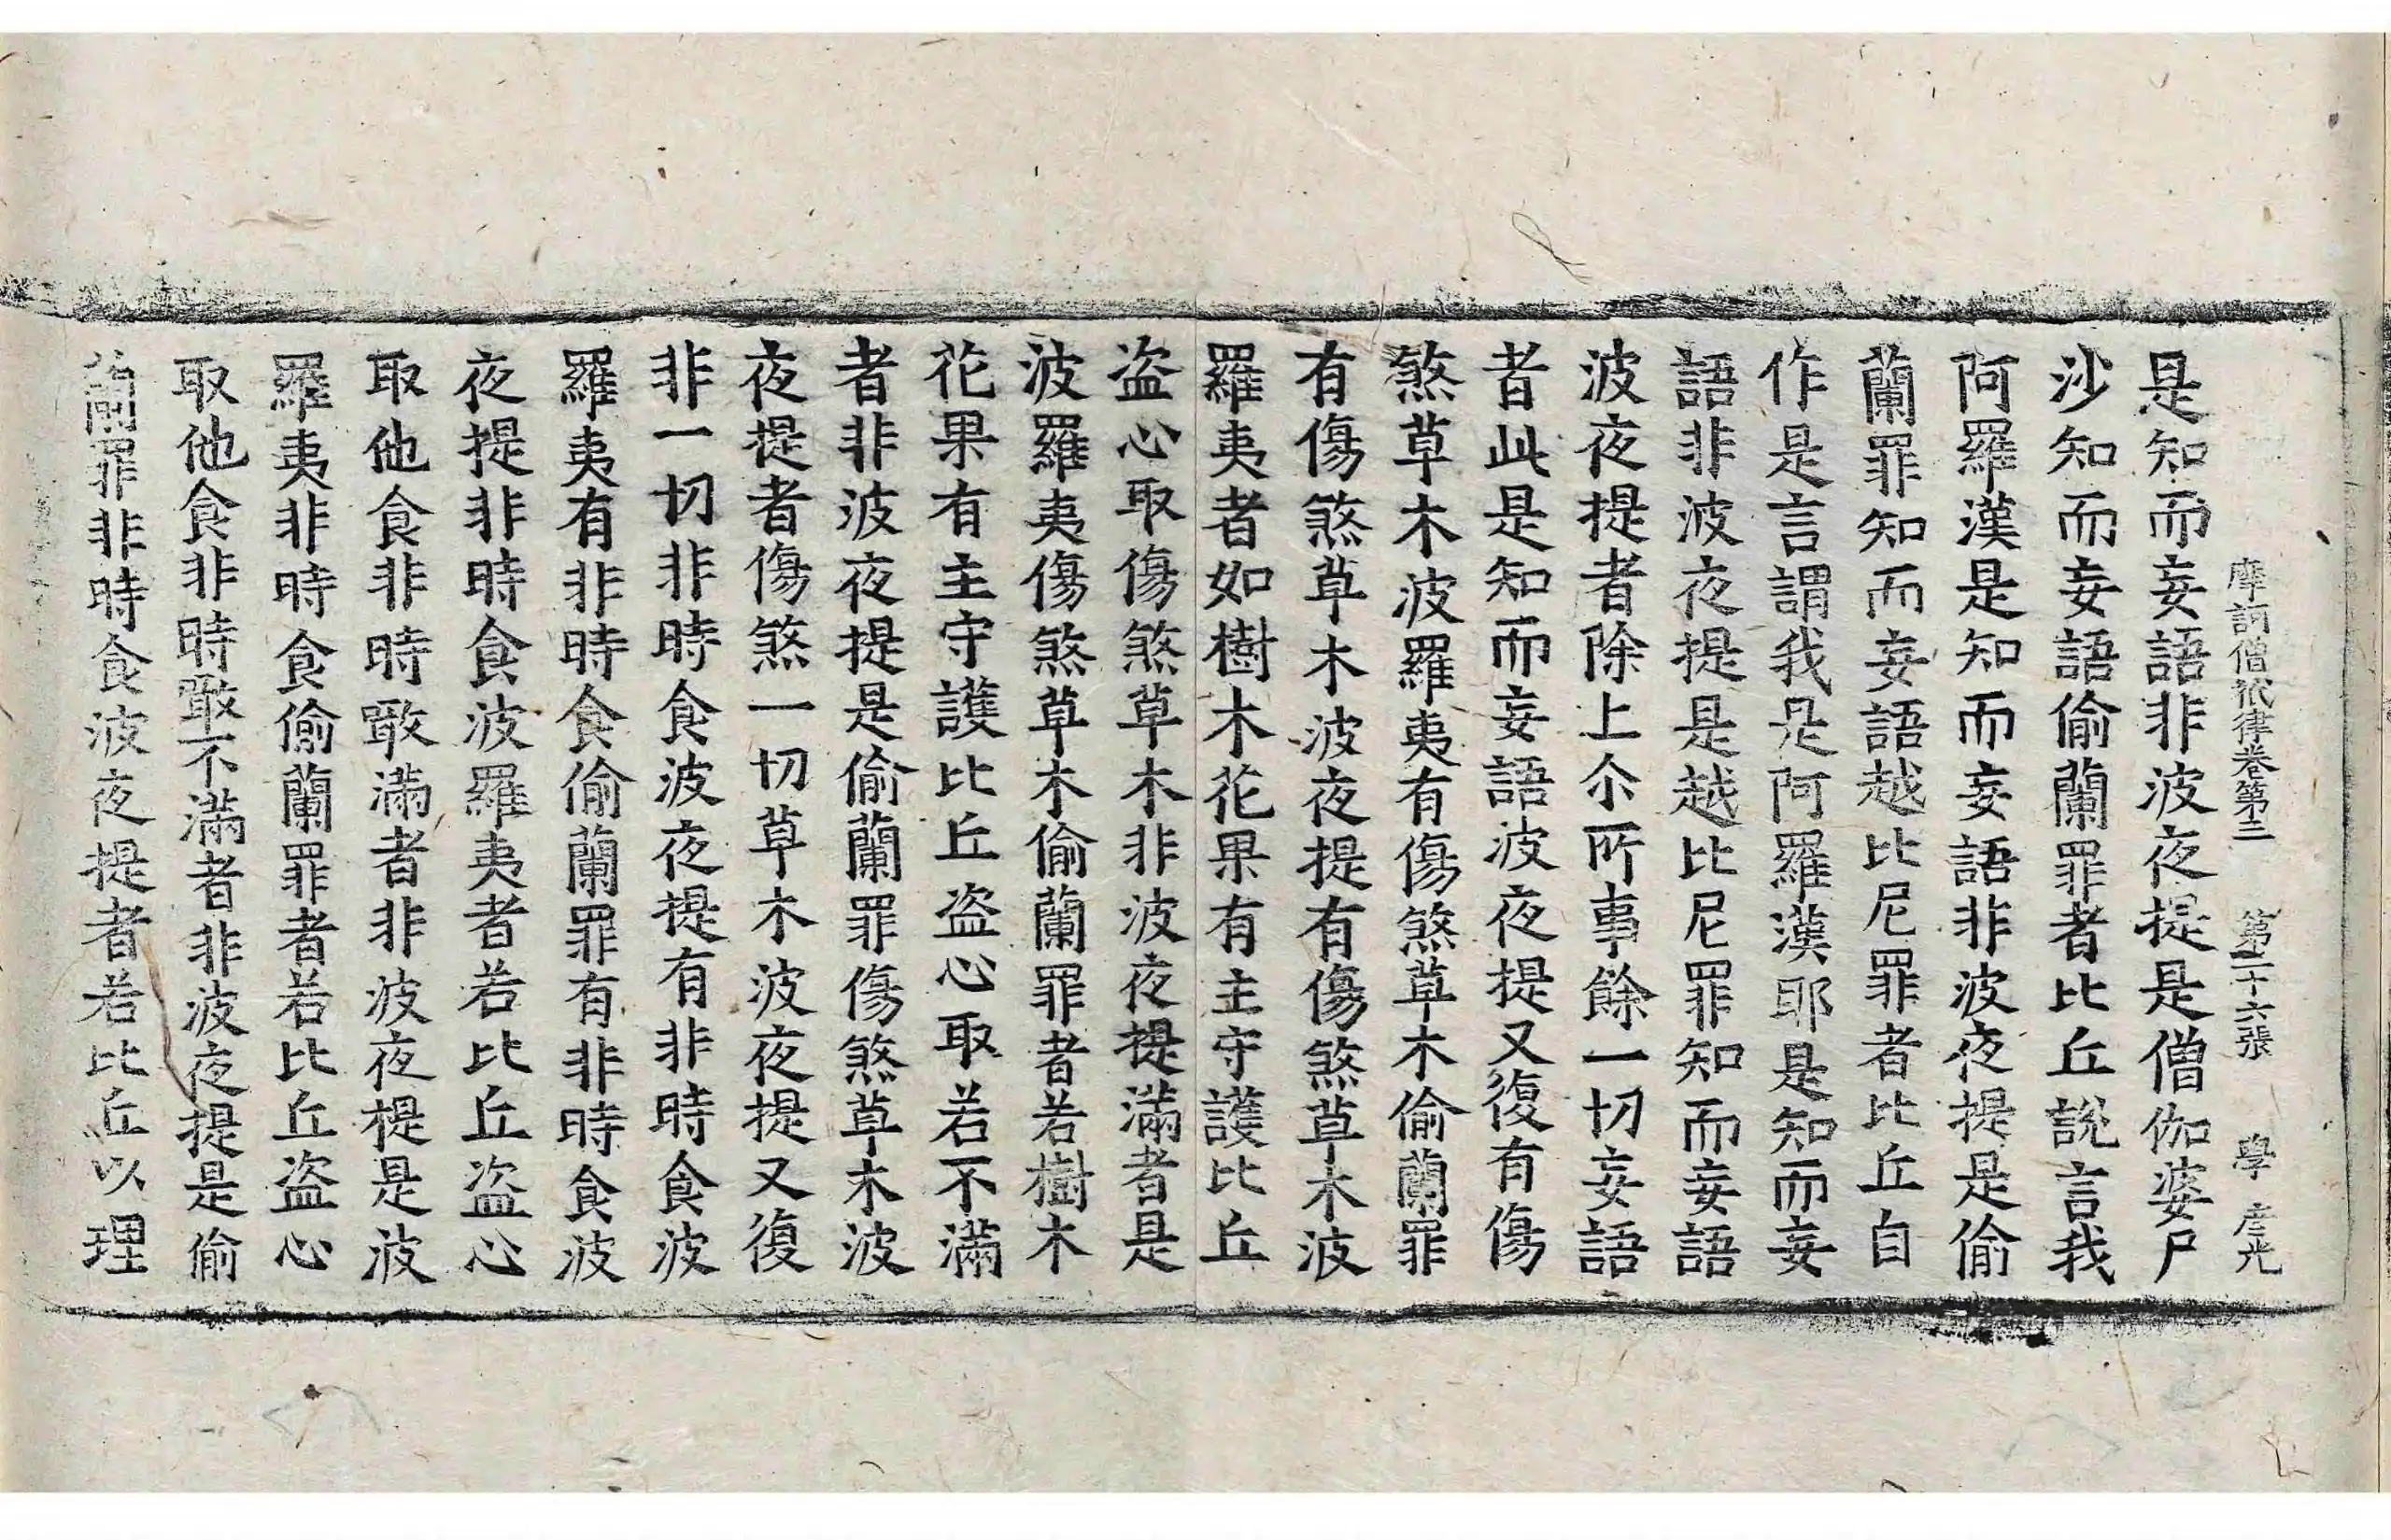 摩訶僧祇律卷第三 第二十六張 學 彦光
是知而妄語非波夜提是僧伽婆尸
沙知而妄語偷蘭罪者比丘說言我
阿羅漢是知而妄語非波夜提是偷
蘭罪知而妄語越比尼罪者比丘自
作是言謂我是阿羅漢耶是知而妄
語非波夜提是越比尼罪知而妄語
波夜提者除上尒所事餘一切妄語
者此是知而妄語波夜提又復有傷
煞草木波羅夷有傷煞草木偷蘭罪
有傷煞草木波夜提有傷煞草木波
羅夷者如樹木花果有主守護比丘
盗心取傷煞草木非波夜提滿者是
波羅夷傷煞草木偷蘭罪者若樹木
花果有主守護比丘盗心取若不滿
者非波夜提是偷蘭罪傷煞草木波
夜提者傷煞一切草木波夜提又復
非一切非時食波夜提有非時食波
羅夷有非時食偷蘭罪有非時食波
夜提非時食波羅夷者若比丘盗心
取他食非時噉滿者非波夜提是波
羅夷非時食偷蘭罪者若比丘盗心
取他食非時噉不滿者非波夜提是偷
蘭罪非時食波夜提者若比丘以理